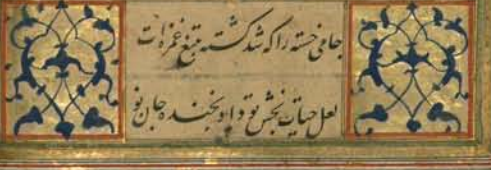 جامی خسته را که شد کشته بتیغ غمزه‌ات
لعل حیات بخش تو داد بخنده جان نو